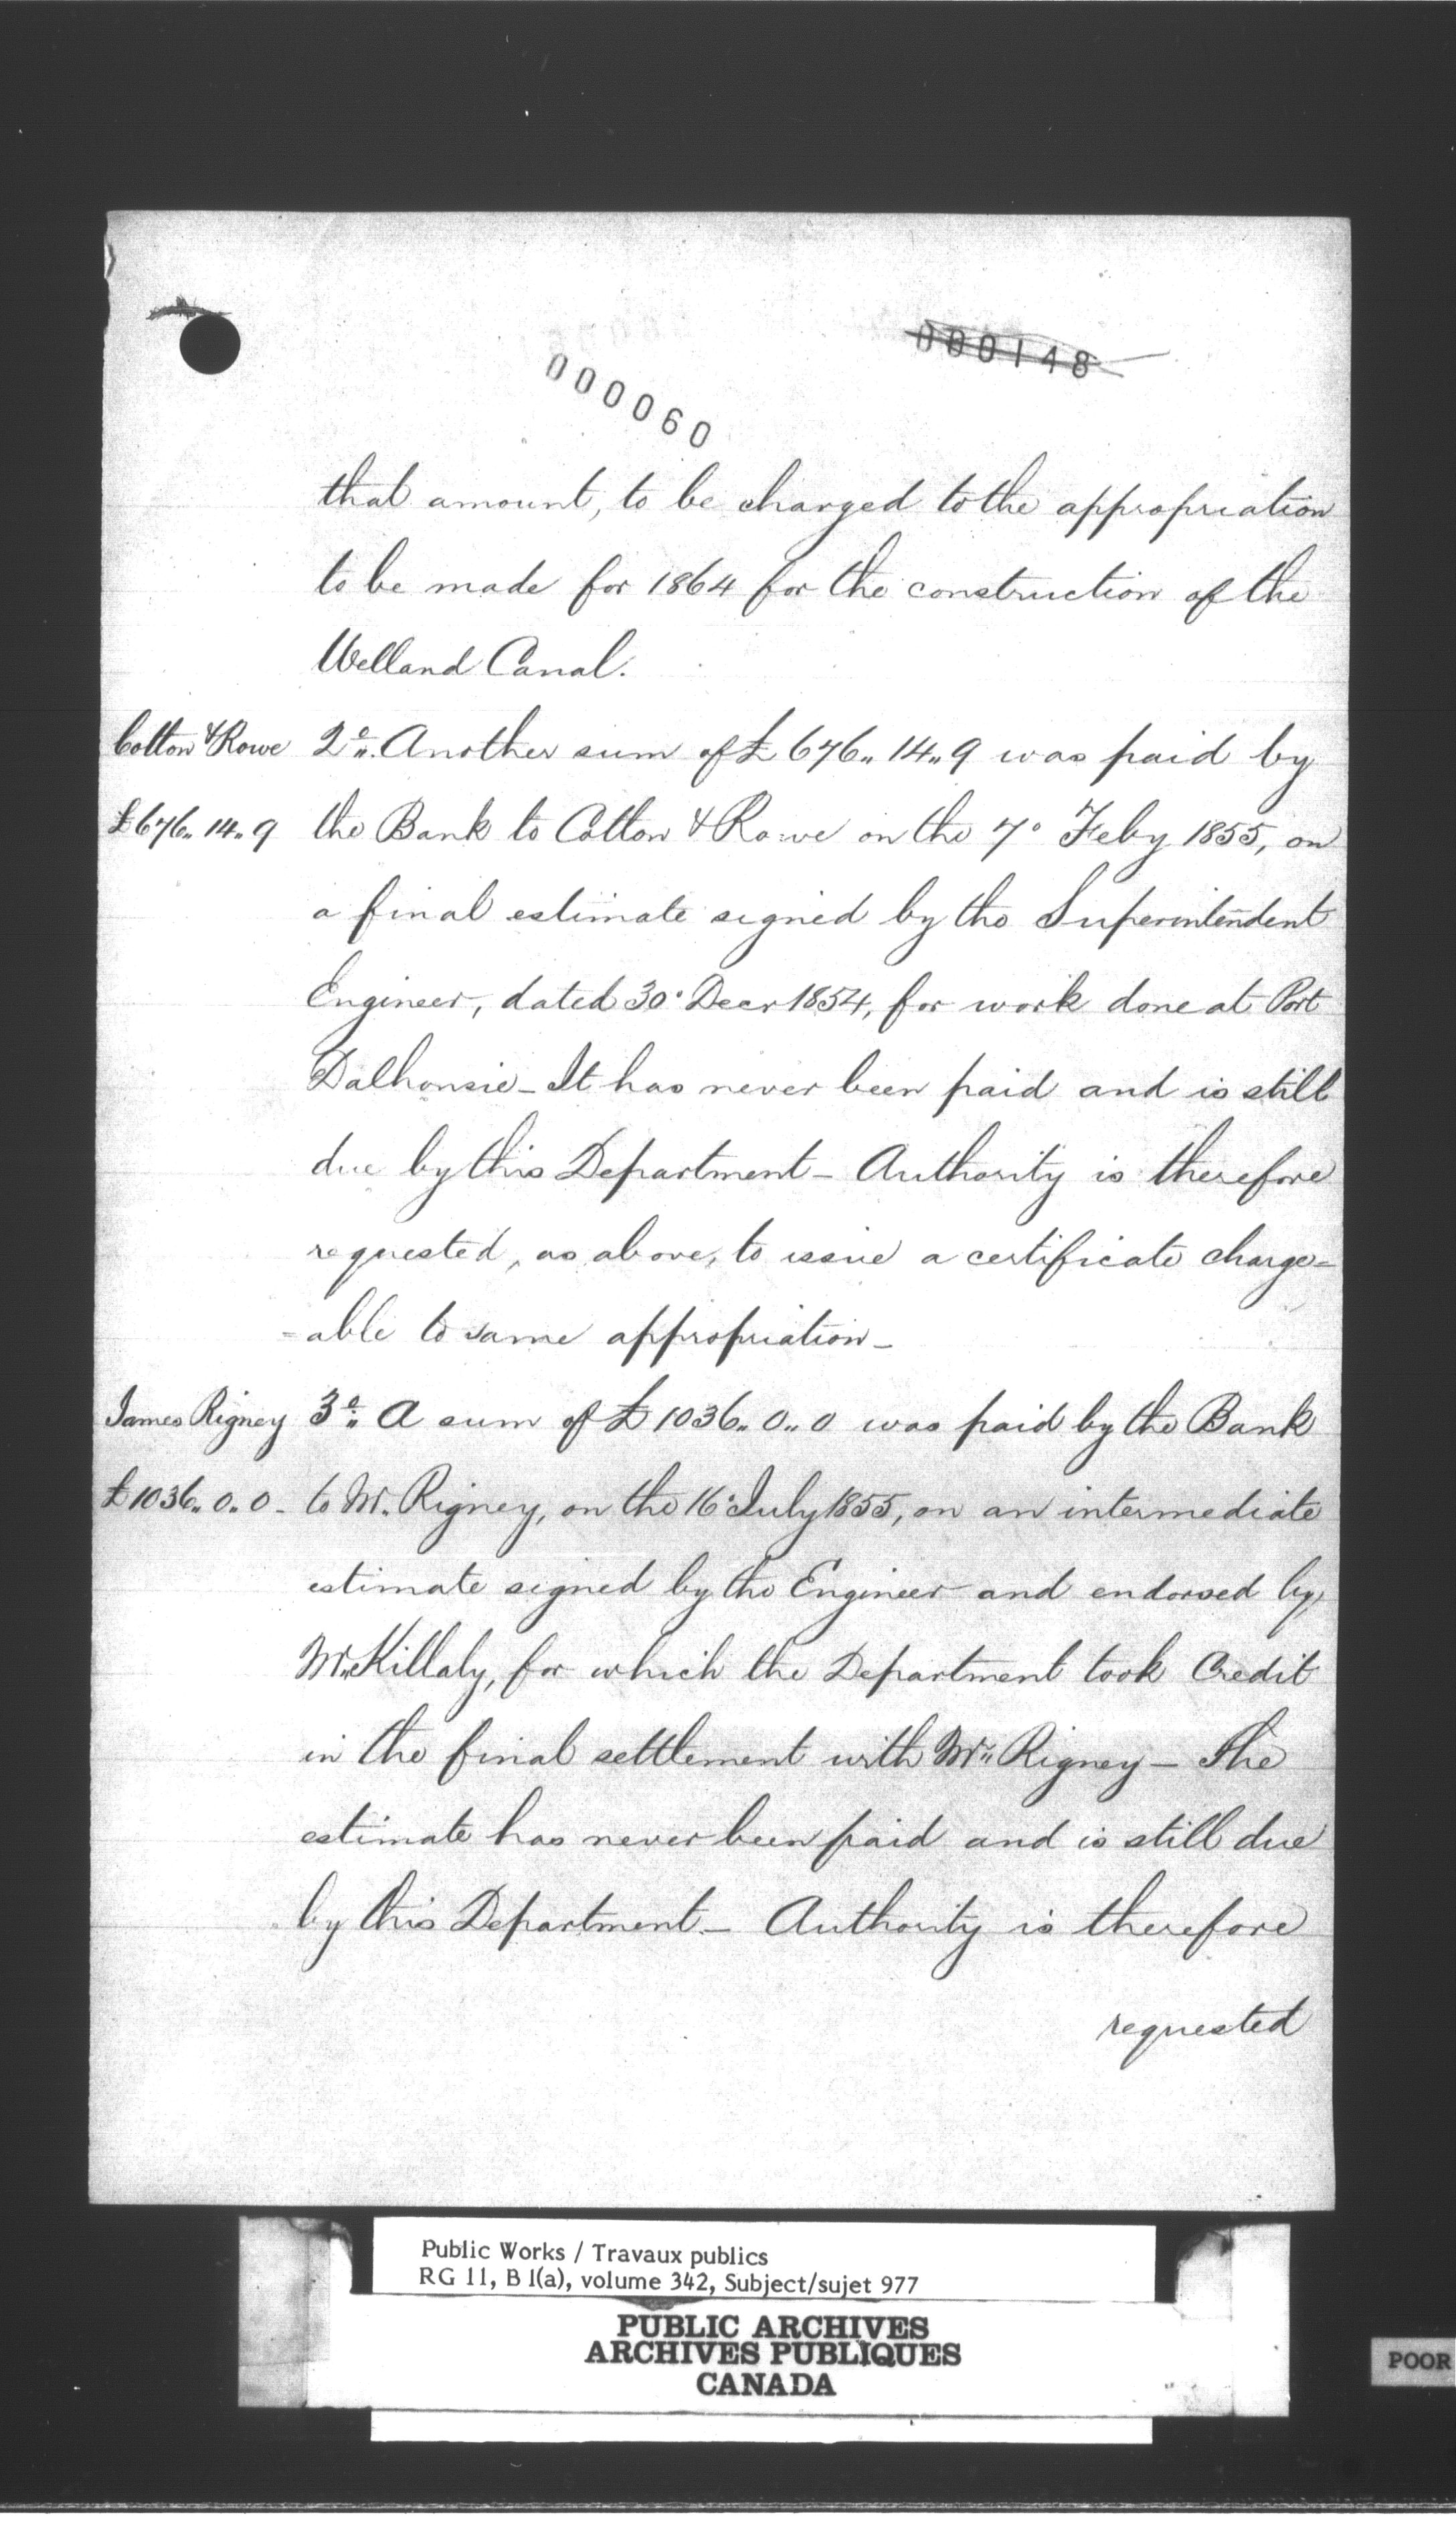 000148
000060
that amount, to be charged to the appropriation
to be made for 1864 for the construction of the
Welland Canal.
Cotton & Rowe 2º. Another sum of £676.. 14.. 9 was paid by
£676.. 14.. 9 the Bank to Cotton & Rowe on the 7º Feby 1855, on
a final estimate signed by the Superintendent
Engineer, dated 30º Decr 1854, for work done at Port
Dalhousie - It has never been paid and is still
due by this Department - Authority is therefore
requested, as above, to issue a certificate charge=
=able to same appropriation -
James Rigney 3º. A sum of £1036.. 0.. 0 was paid by the Bank
£1036.. 0.. 0 - to Mr. Rigney, on the 16º July 1855, on an intermediate
estimate signed by the Engineer and endorsed by
Mr. Killaly, for which the Department took Credit
in the final settlement with Mr. Rigney - The
estimate has never been paid and is still due
by this Department - Authority is therefore
requested
Public Works / Travaux publics
RG 11, B 1(a), volume 342, Subject/sujet 977
PUBLIC ARCHIVES
ARCHIVES PUBLIQUES
CANADA
POOR